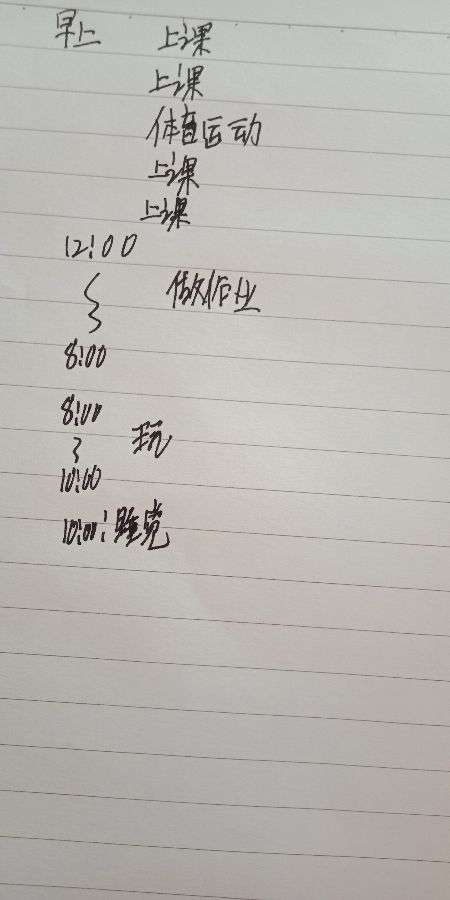 早上 上课
上课
体育运动
上课
上课
12:00
~ 做作业
8:00
8:00
~ 玩
10:00
10:00:睡觉